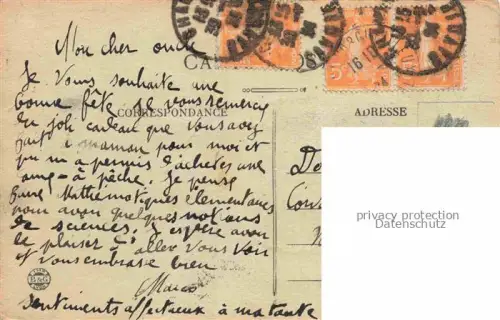 Mon cher oncle
CARTE POSTALE
Je vous souhaite une
bonne fête je vous remercie
CORRESPONDANCE
ADRESSE
du joli cadeau que vous avez
fait à maman pour moi et
qui m'a permis d'acheter une
à pêche. Je pense
faire Mathématiques elementaires
pour avoir quelques notions
de sciences. J'espère avoir
le plaisir d'aller vous voir
et vous embrasse bien
Marc
sentiments affectueux à ma tante
privacy protection
Datenschutz